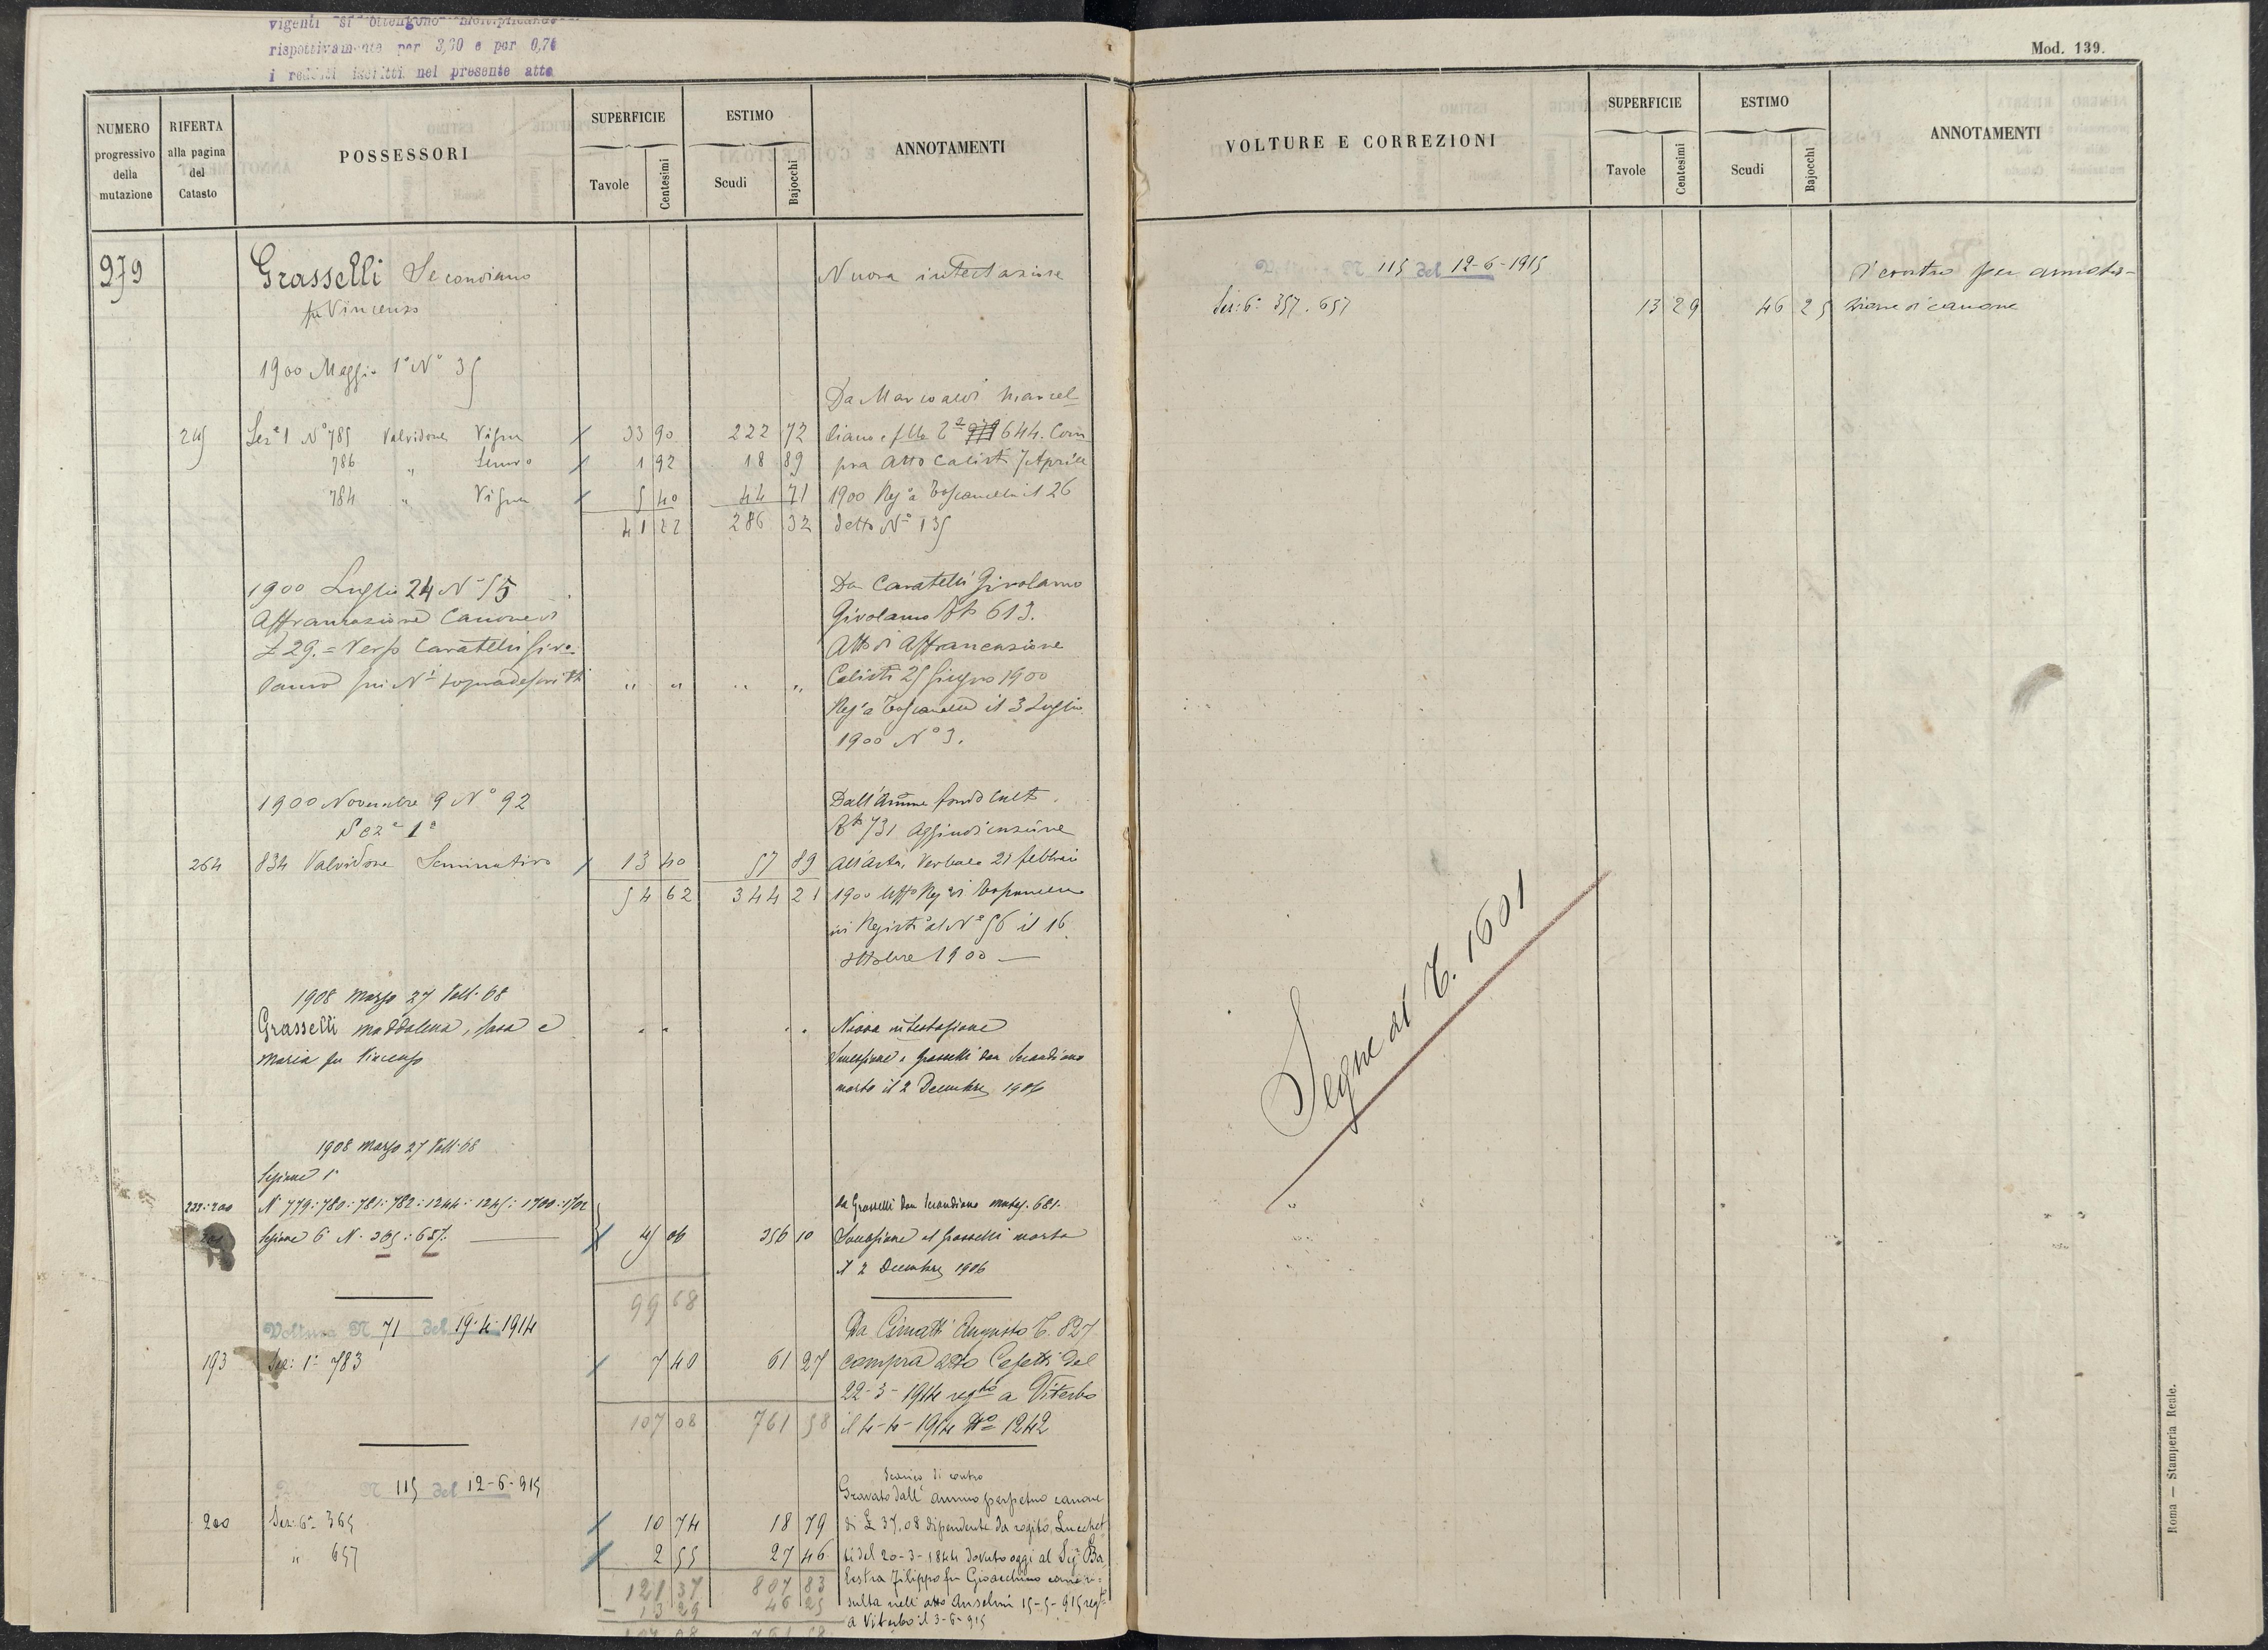 vigenti si ottengono moltiplicando
rispettivamente per 3,70 e per 0,74
i redditi iscritti nel presente atto
Mod. 139.
NUMERO progressivo della mutazione
RIFERTA alla pagina del Catasto
POSSESSORI
SUPERFICIE
Tavole Centesimi
ESTIMO
Scudi Bajocchi
ANNOTAMENTI
VOLTURE E CORREZIONI
SUPERFICIE
Tavole Centesimi
ESTIMO
Scudi Bajocchi
ANNOTAMENTI
979 Grasselli Secondiano Nuova intestazione
fu Vincenzo
1900 Maggio 1° N° 35
Da Marcoaldi Marcel
245 Sez.e 1 N° 785 Valvidone Vigna 33 90 222 72 liano e 644. Com
786 " Semvo 1 92 18 89 pra Atto Calisti 7 Aprile
784 " Vigna 5 40 44 71 1900 Reg° a Toscanella il 26
41 22 286 32 detto N° 135
1900 Luglio 24 N° 55 Da Caratelli Girolamo
Affrancazione Canone di Girolamo 613.
£ 29.= Verso Caratelli Giro- Atto di Affrancazione
lamo sui N.i sopradescritti " " " " Calisti 25 Giugno 1900
Reg° a Toscanella il 3 Luglio
1900 N° 3.
1900 Novembre 9 N° 92 Dall'Amme fondo Culto
Sez.e 1a 731 Aggiudicazione
264 834 Valvidone Seminativo 13 40 57 89 all'Asta, Verbale 21 febbraio
54 62 344 21 1900 Uffo Reg° di Toscanella
ivi Registo al N° 56 il 16
Ottobre 1900 —
1908 Marzo 27 Volt. 68
Grasselli Maddalena, Rosa e " " " " Nuova intestazione
Maria fu Vincenzo Successione a Grasselli Don Secondiano
morto il 2 Decembre 1906
1908 Marzo 27 Volt. 68
Sezione 1a
222:200 N 779:780:781:782:1244:1245:1700:1702 da Grasselli Don Secondiano 681.
Sezione 6 N. 365:657. 45 06 356 10 Successione al Grasselli morto
il 2 Decembre 1906
99 68
Voltura N 71 del 19-4-1914 Da Cimatti Augusto C. 827
193 Sez: 1a 783 7 40 61 27 compra atto Cesetti del
22-3-1914 regto a Viterbo
107 08 761 58 il 4-4-1914 No 1242
N 115 del 12-6-915 Scarico di contro
Gravato dall'annuo perpetuo canone
200 Sez: 6a 365 10 74 18 79 di £ 37.08 dipendente da rogito Lucchet
" 657 2 55 27 46 ti del 20-3-1844 dovuto oggi al Sig. Ba
121 37 807 83 lestra Filippo fu Gioacchino come ri-
- 13 29 46 25 sulta nell'atto Anselmi 15-5-915 regto
107 08 761 58 a Viterbo il 3-6-915
N 115 del 12-6-1915 Di contro per annota-
Sez: 6a 357. 657 13 29 46 25 zione di canone
Segue al C. 1601
Roma — Stamperia Reale.